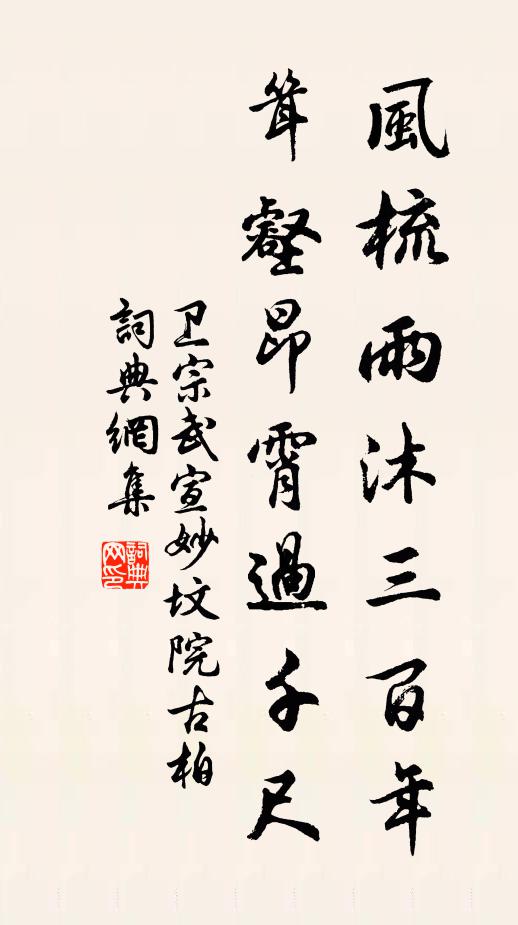 風梳雨沐三百年
聳壑昂霄過千尺
卫宗武宣妙坟院古柏
詞典網集
詞典网印